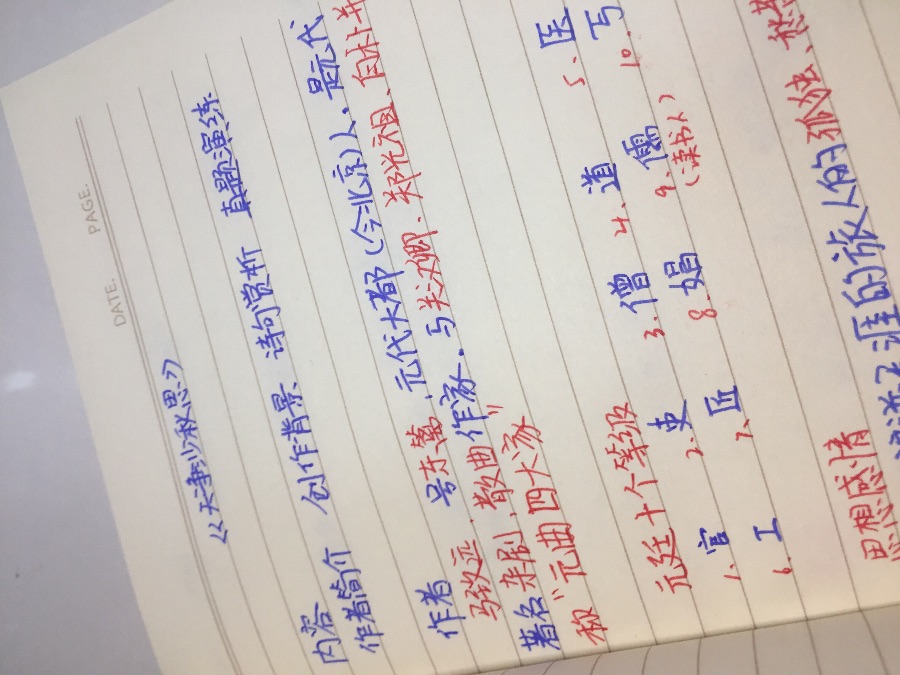 DATE. PAGE.
《天净沙秋思》
内容 创作背景 诗句赏析 真题演练
作者简介
作者 号东篱，元代大都(今北京)人，是元代
马致远，
著名杂剧、散曲作家。与关汉卿、郑光祖、白朴并
称"元曲四大家"
元廷十个等级
1. 官 2. 吏 3. 僧 4. 道 5. 医
6. 工 7. 匠 8. 娼 9. 儒 10. 丐
(读书人)
思想感情
涯的旅人的孤独、愁